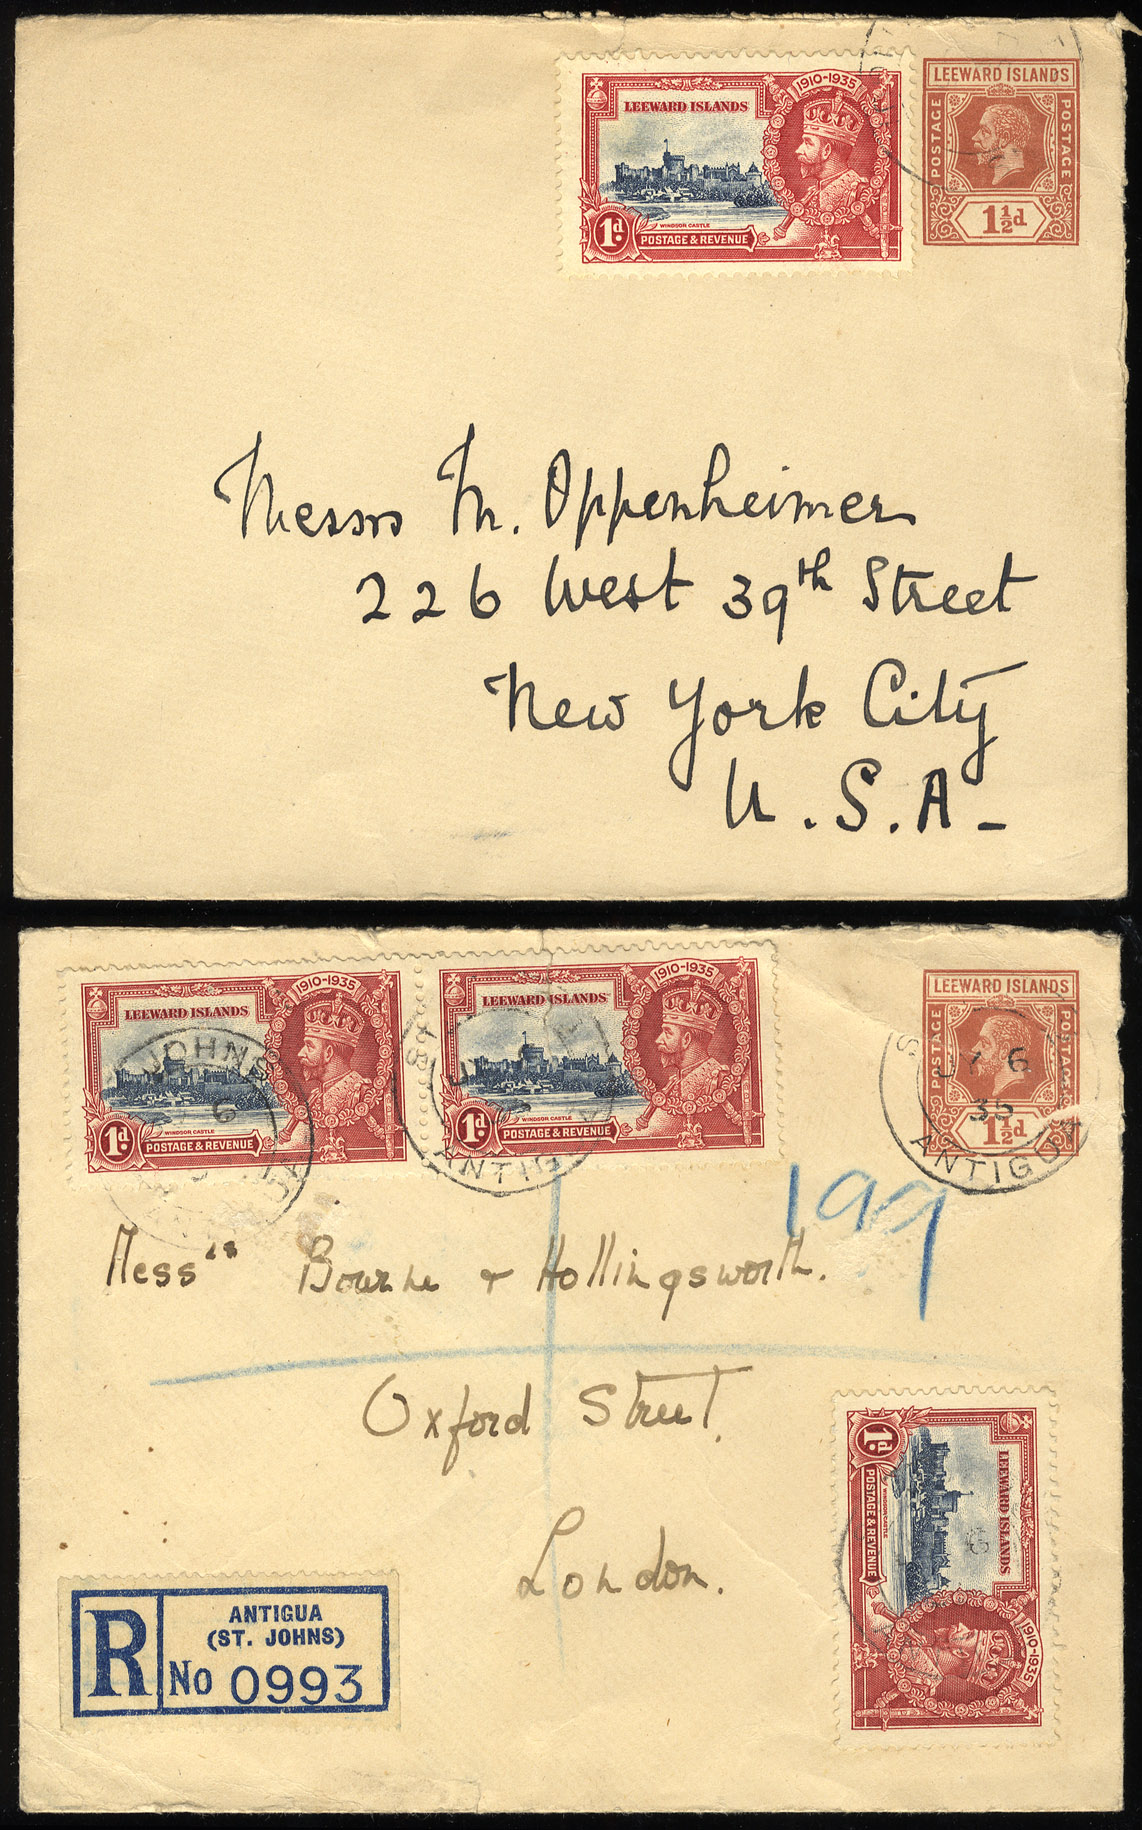 1910-1935
LEEWARD ISLANDS
WINDSOR CASTLE
1d.
POSTAGE & REVENUE
LEEWARD ISLANDS
POSTAGE
POSTAGE
1½d
Messrs M. Oppenheimer
226 West 39th Street
New York City
U.S.A-
1910-1935
LEEWARD ISLANDS
WINDSOR CASTLE
1d.
POSTAGE & REVENUE
JOHNS
6
1910-1935
LEEWARD ISLANDS
WINDSOR CASTLE
1d.
POSTAGE & REVENUE
ANTIG
LEEWARD ISLANDS
POSTAGE
POSTAGE
1½d
JY 6
35
ANTIGUA
199
Messrs Bourne & Hollingsworth.
Oxford Street.
London.
1910-1935
LEEWARD ISLANDS
WINDSOR CASTLE
1d.
POSTAGE & REVENUE
R
ANTIGUA
(ST. JOHNS)
No 0993